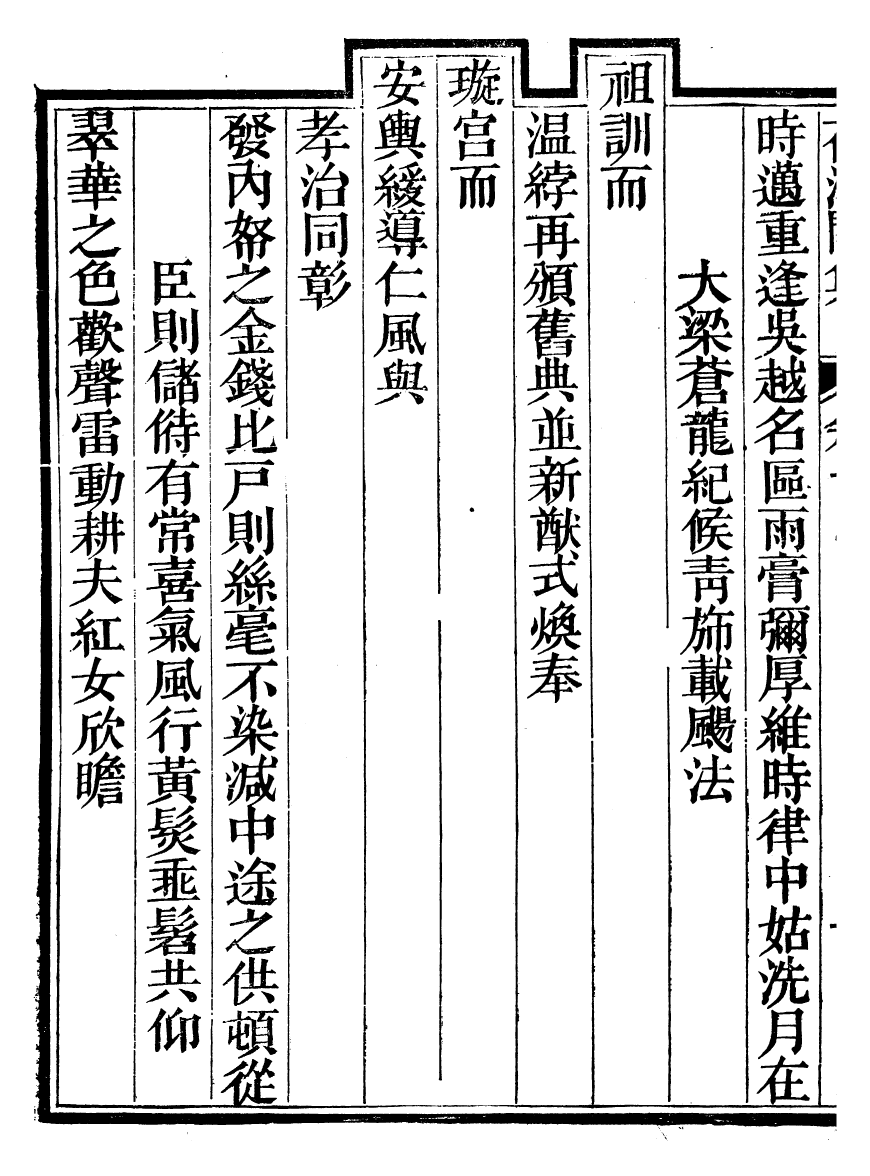 時邁重逢吳越名區雨膏彌厚維時律中姑洗月在
大梁蒼龍紀候靑斾載颺法
祖訓而
温綍再頒舊典並新猷式煥奉
璇宫而
安輿緩導仁風與
孝治同彰
發內帑之金錢比戸則絲毫不染减中途之供頓從
臣則儲偫有常喜氣風行黃髮垂髫共仰
翠華之色歡聲雷動耕夫紅女欣瞻